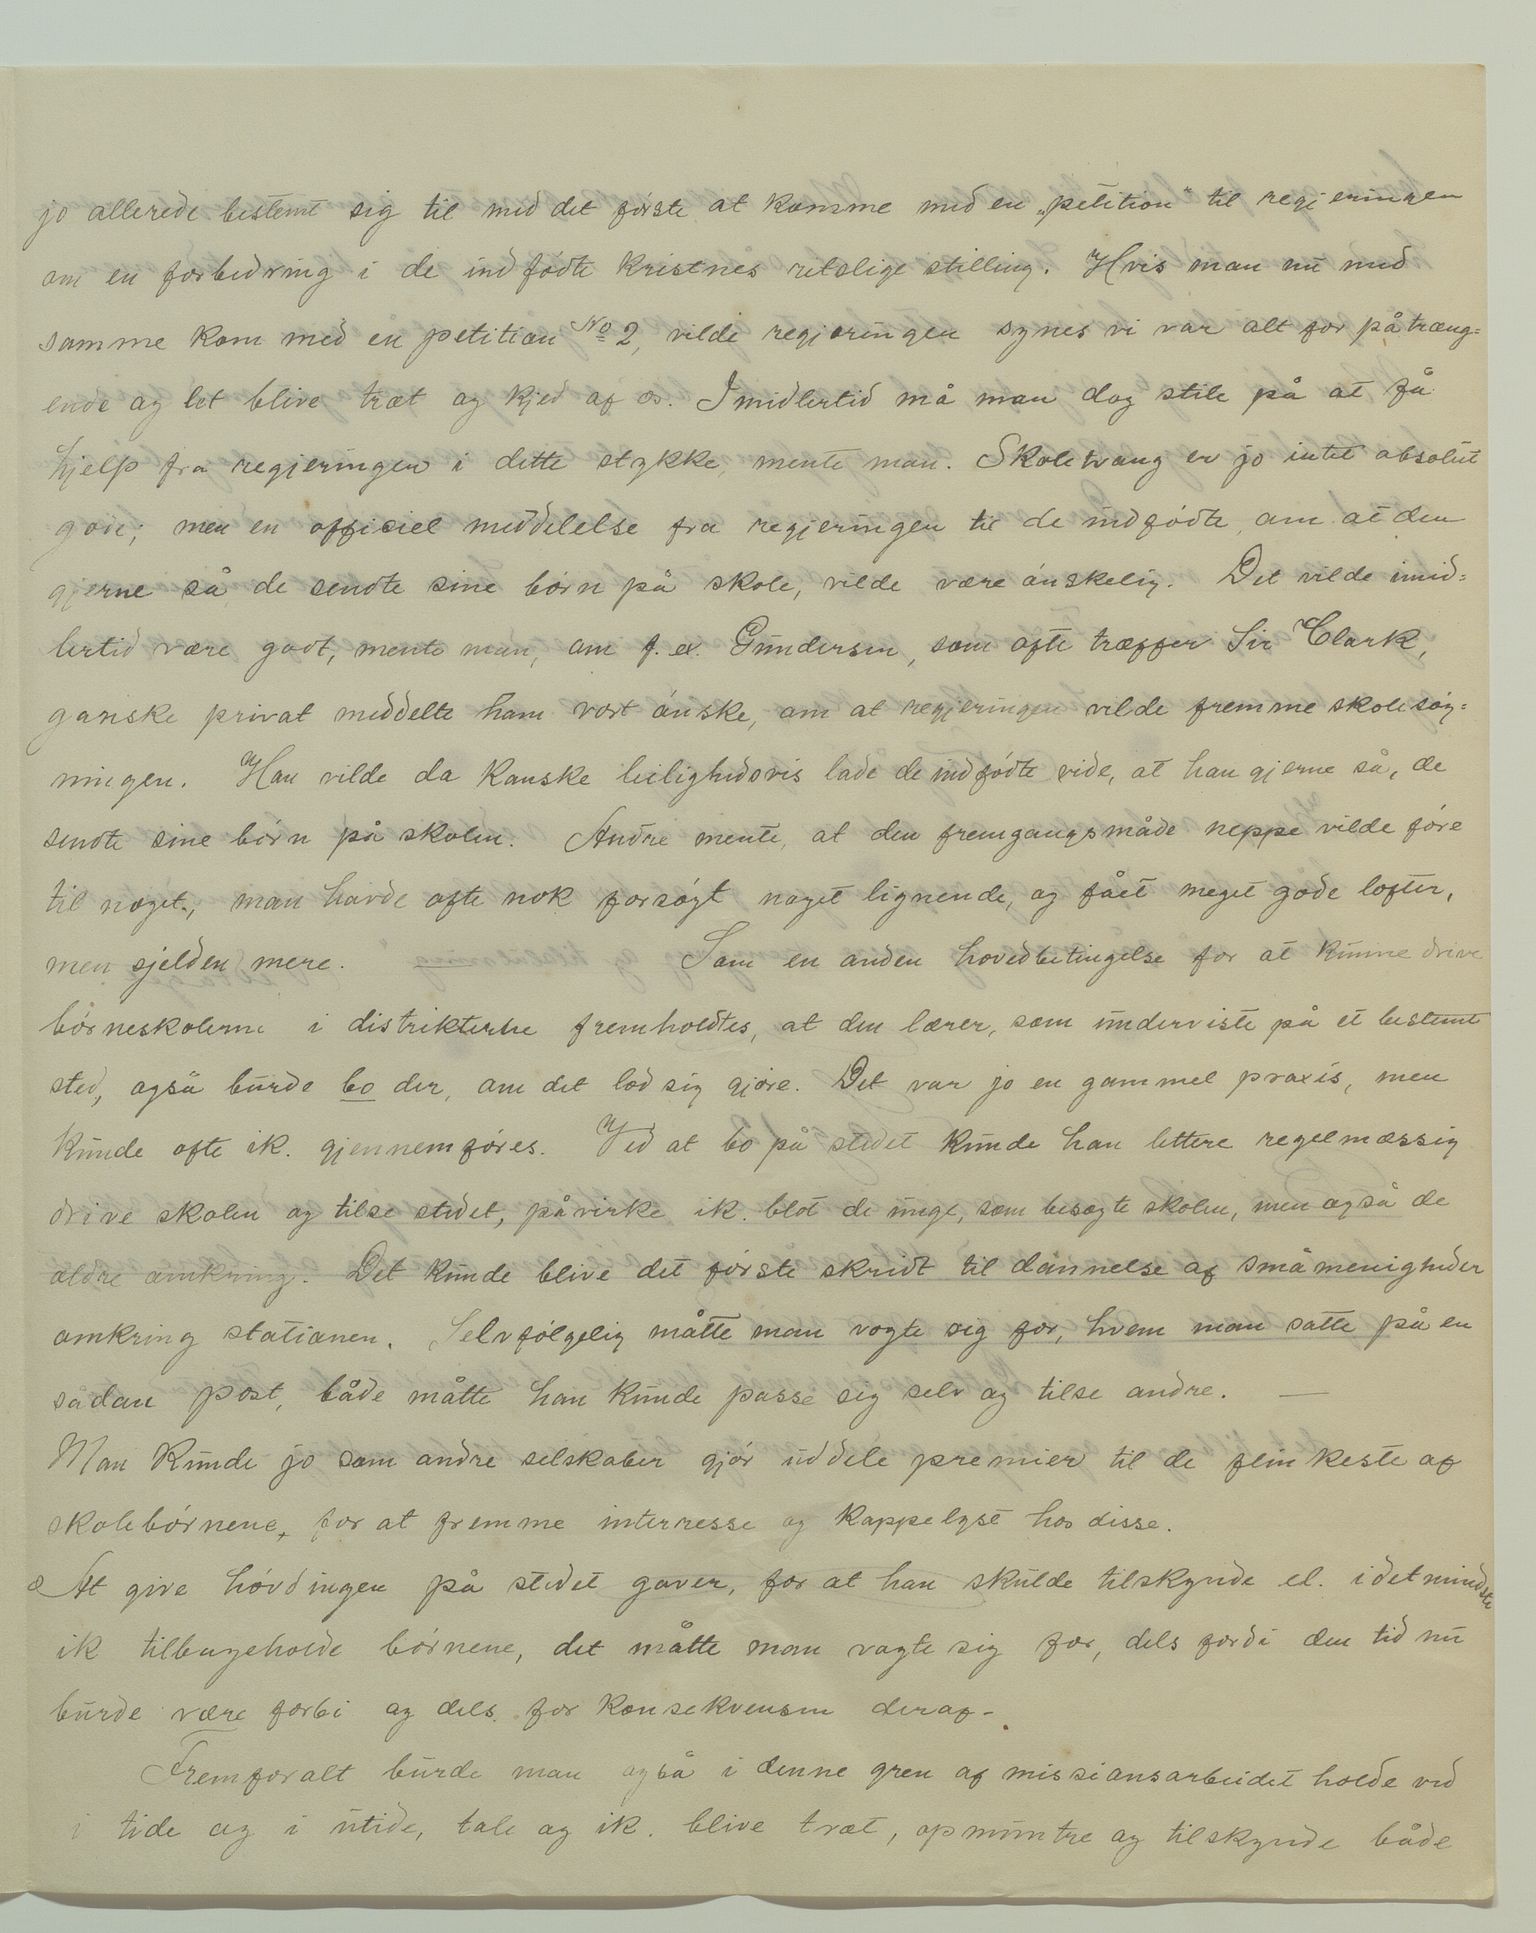 jo allerede bestemt sig til med det første at komme med en „petition" til regjeringen
om en forbedring i de indfødte kristnes retslige stilling. Hvis man nu med
samme kom med en petition No 2, vilde regjeringen synes vi var alt for påtræng=
ende og let blive træt og kjed af os. Imidlertid må man dog stile på at få
hjelp fra regjeringen i dette stykke, mente man. Skoletvang er jo intet absolut
gode; men en officiel meddelelse fra regjeringen til de indfødte, om at den
gjerne så, de sendte sine børn på skole, vilde være ønskelig. Det vilde imid=
lertid være godt, mente man, om f. ex. Gundersen, som ofte træffer Sir Clark,
ganske privat meddelte ham vort ønske, om at regjeringen vilde fremme skolesøg=
ningen. Han vilde da kanske leilighedsvis lade de indfødte vide, at han gjerne så, de
sendte sine børn på skolen. Andre mente, at den fremgangsmåde neppe vilde føre
til noget, man havde ofte nok forsøgt noget lignende, og fået meget gode løfter,
men sjelden mere. — Som en anden hovedbetingelse for at kunne drive
børneskolerne i distrikterne fremholdtes, at den lærer, som underviste på et bestemt
sted, også burde bo der, om det lod sig gjøre. Det var jo en gammel praxis, men
kunde ofte ik. gjennemføres. Ved at bo på stedet kunde han lettere regelmæssig
drive skolen og tilse stedet, påvirke ik. blot de unge, som besøgte skolen, men også de
ældre omkring. Det kunde blive det første skridt til dannelse af småmenigheder
omkring stationen. Selvfølgelig måtte man vogte sig for, hvem man satte på en
sådan post, både måtte han kunde passe sig selv og tilse andre. —
Man kunde jo som andre selskaber gjør uddele premier til de flinkeste af
skolebørnene, for at fremme interresse og kappelyst hos disse.
At give høvdingen på stedet gaver, for at han skulde tilskynde el. idetmindste
ik tilbageholde børnene, det måtte man vogte sig for, dels fordi den tid nu
burde være forbi og dels for konsekvensen deraf-.
Fremforalt burde man også i denne gren af missionsarbeidet holde ved
i tide og i utide, tale og ik. blive træt, opmuntre og tilskynde både